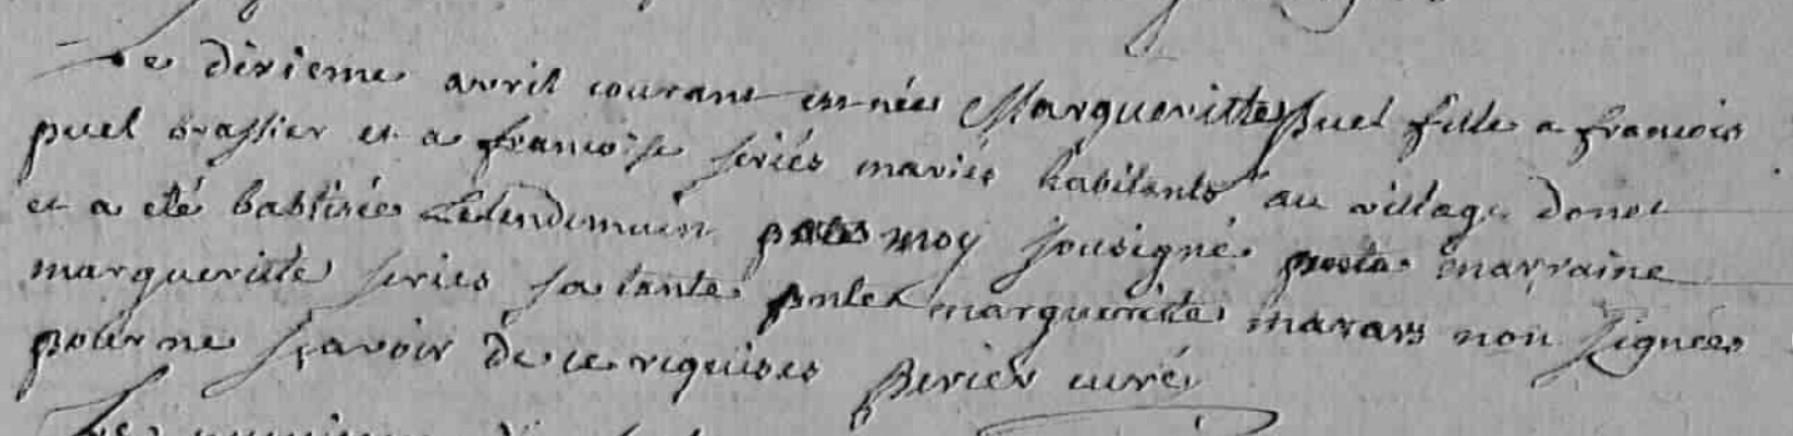 Le dixieme avril courant est née Margueritte puel fille a francois
puel brassier et a francoise seriés mariés habitants au village donet
et a eté babtisée Lelendemain par moy sousigné marraine
margueritte series sa tante margueritte marass non signées
pour ne sçavoir de ce requises perier curé